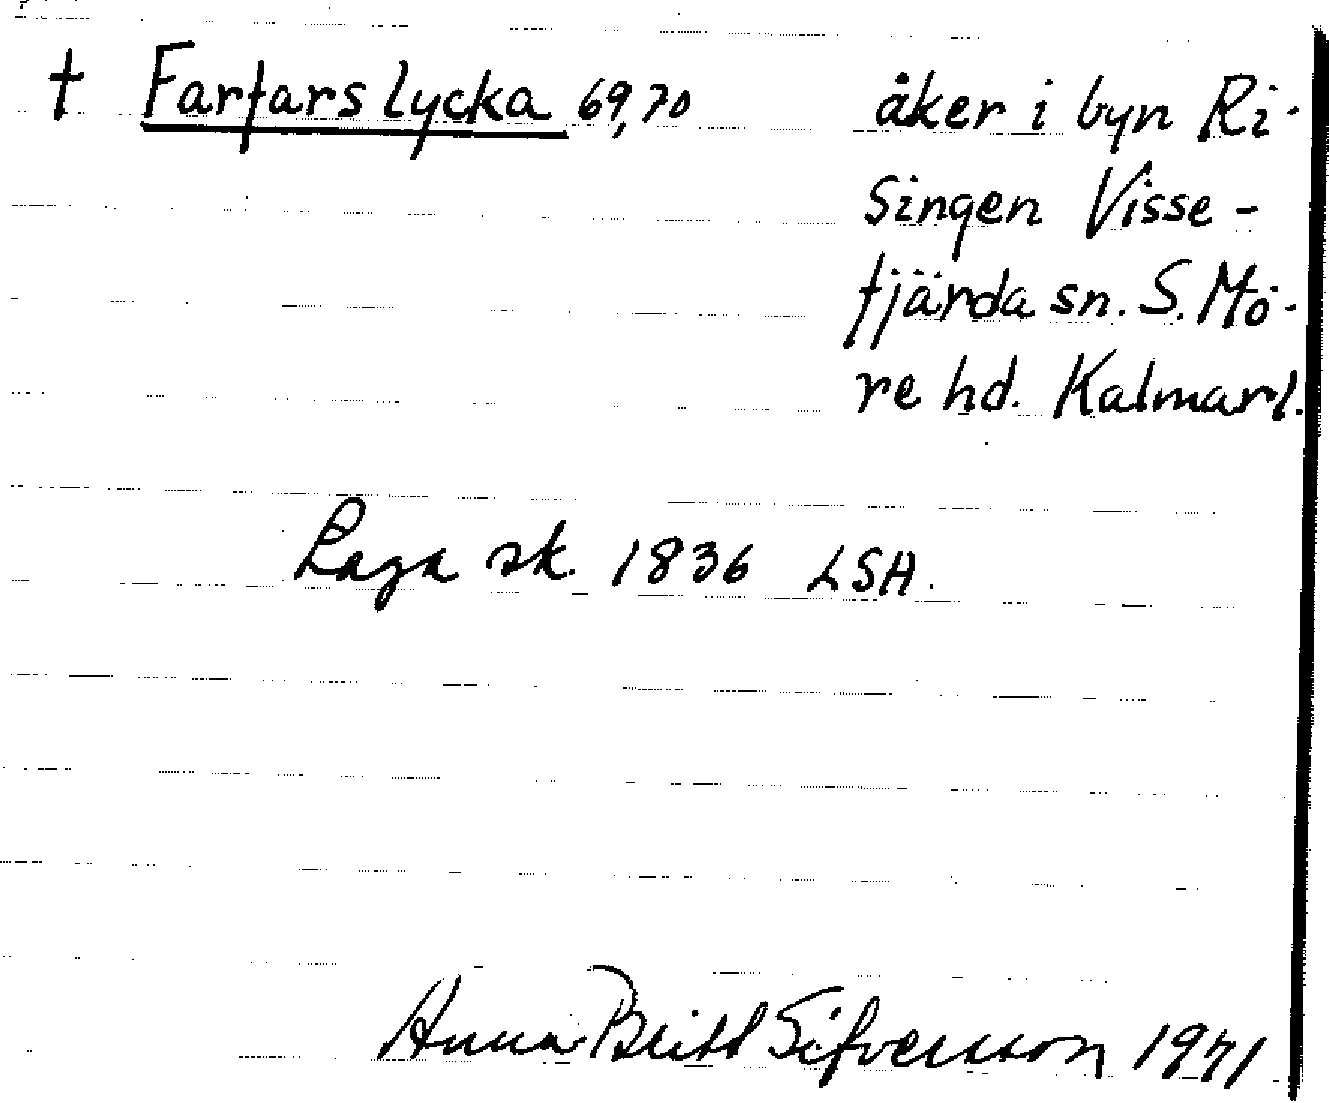 † Farfars lycka 69,70 åker i byn Ri-
singen Visse-
fjärda sn. S. Mö-
re hd. Kalmarl.
Laga sk. 1836 LSA.
Anna-Britt Sifversson 1971